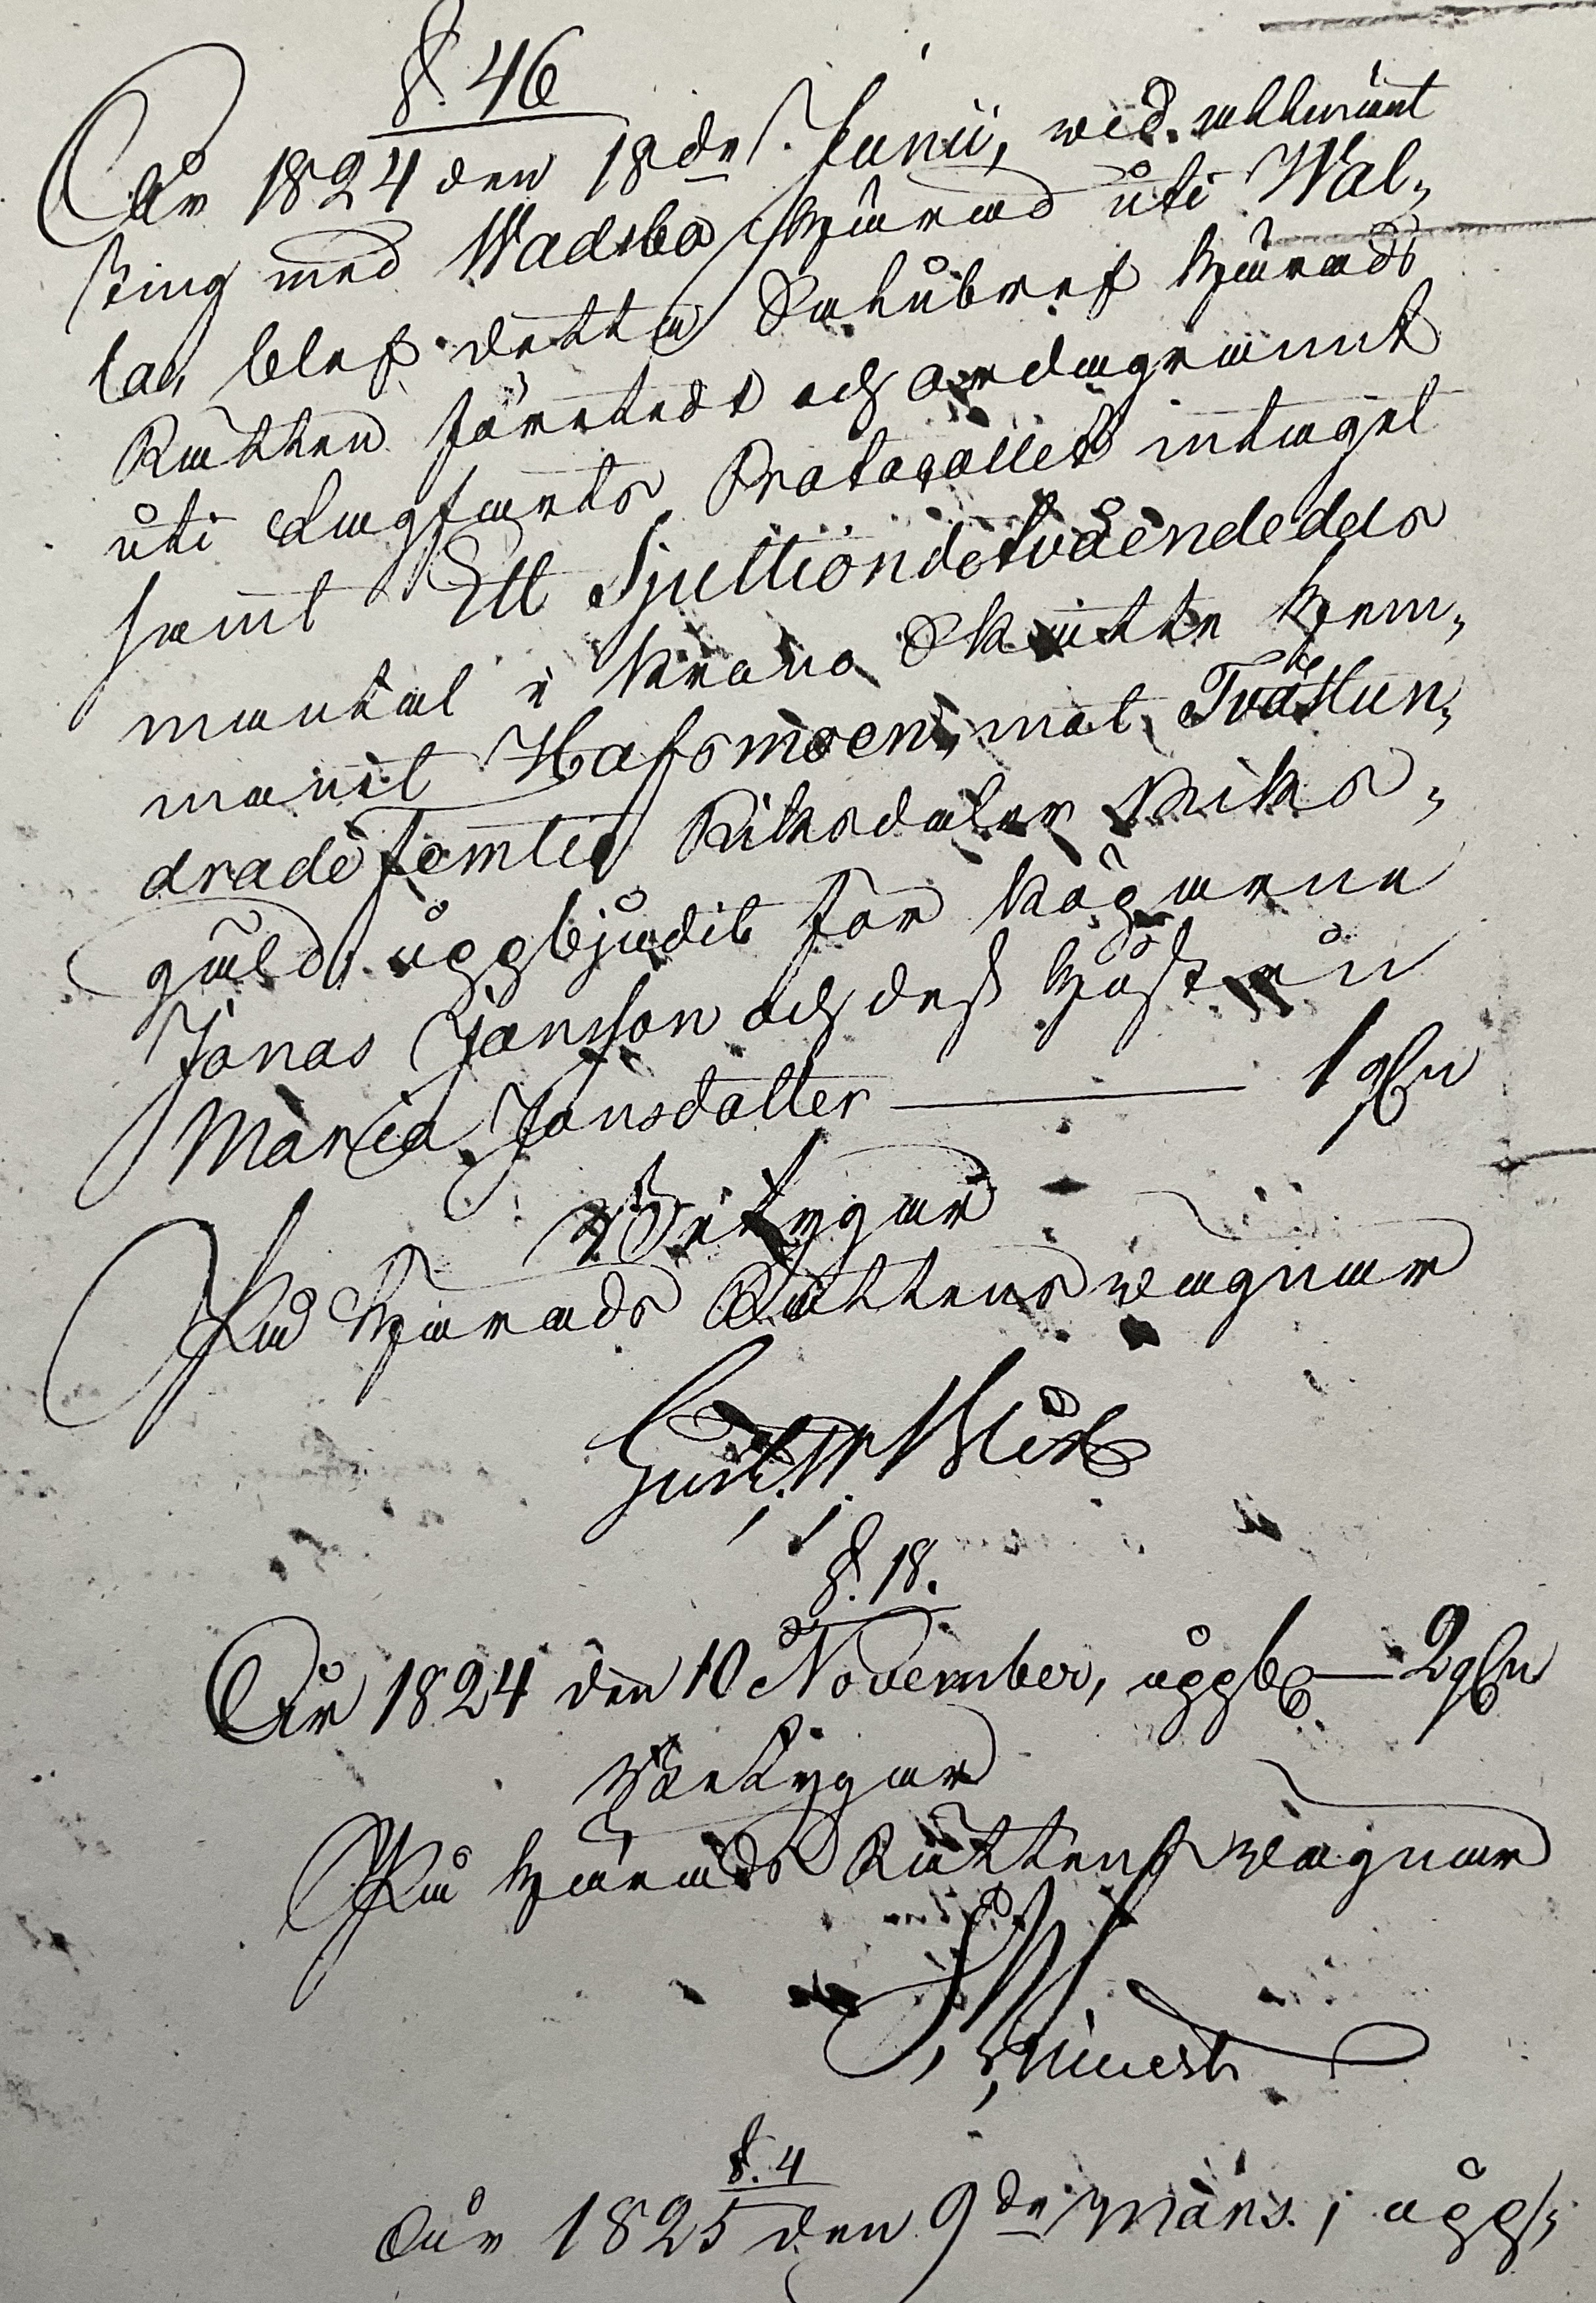 §. 46
År 1824 den 18de Junii, wid allmänt
Ting med Wadsbo Härad uti Wal„
la, blef detta Salubref Härads
Rätten företeds och ordagrannt
uti Lagfarts Protocollet intaget
samt Ett Sjuttiondetvåendedels
mantal i Krono Skatte Hem„
manet Hafsmoen, mot Tvåhun„
drade femtio Riksdaler Riks„
gäld, uppbjudit för köparne
Jonas Jonsson och dess hustru
Maria Jonsdotter — 1 gån
Betygar
På Härads Rättens wägnar
§. 18.
År 1824 den 10 November, uppb — 2 gån
Betygar
På Härads Rättens wägnar
§. 4
År 1825 den 9de Mars, upp„